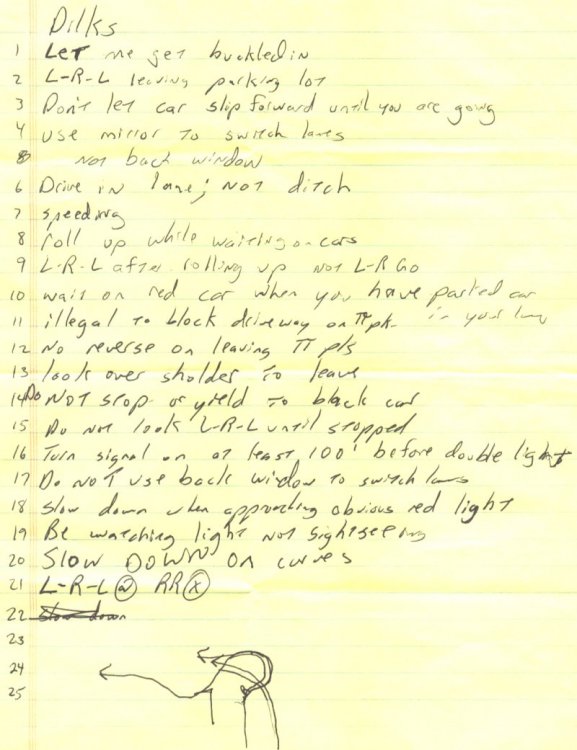 Dilks
1 Let me get buckled in
2 L-R-L leaving parking lot
3 Don't let car slip forward until you are going
4 use mirror to switch lanes
5 not back window
6 Drive in lane; not ditch
7 speeding
8 roll up while waiting on cars
9 L-R-L after rolling up not L-R Go
10 wait on red car when you have parked car in your lane
11 illegal to block driveway on π pk.
12 No reverse on leaving π pk
13 look over sholder to leave
14 Do NOT stop or yield to black car
15 Do not look L-R-L until stopped
16 Turn signal on at least 100' before double light
17 Do not use back window to switch lanes
18 slow down when approaching obvious red light
19 Be watching light not sightseeing
20 Slow DOWN on curves
21 L-R-L @ RR X
22 slow down
23
24
25